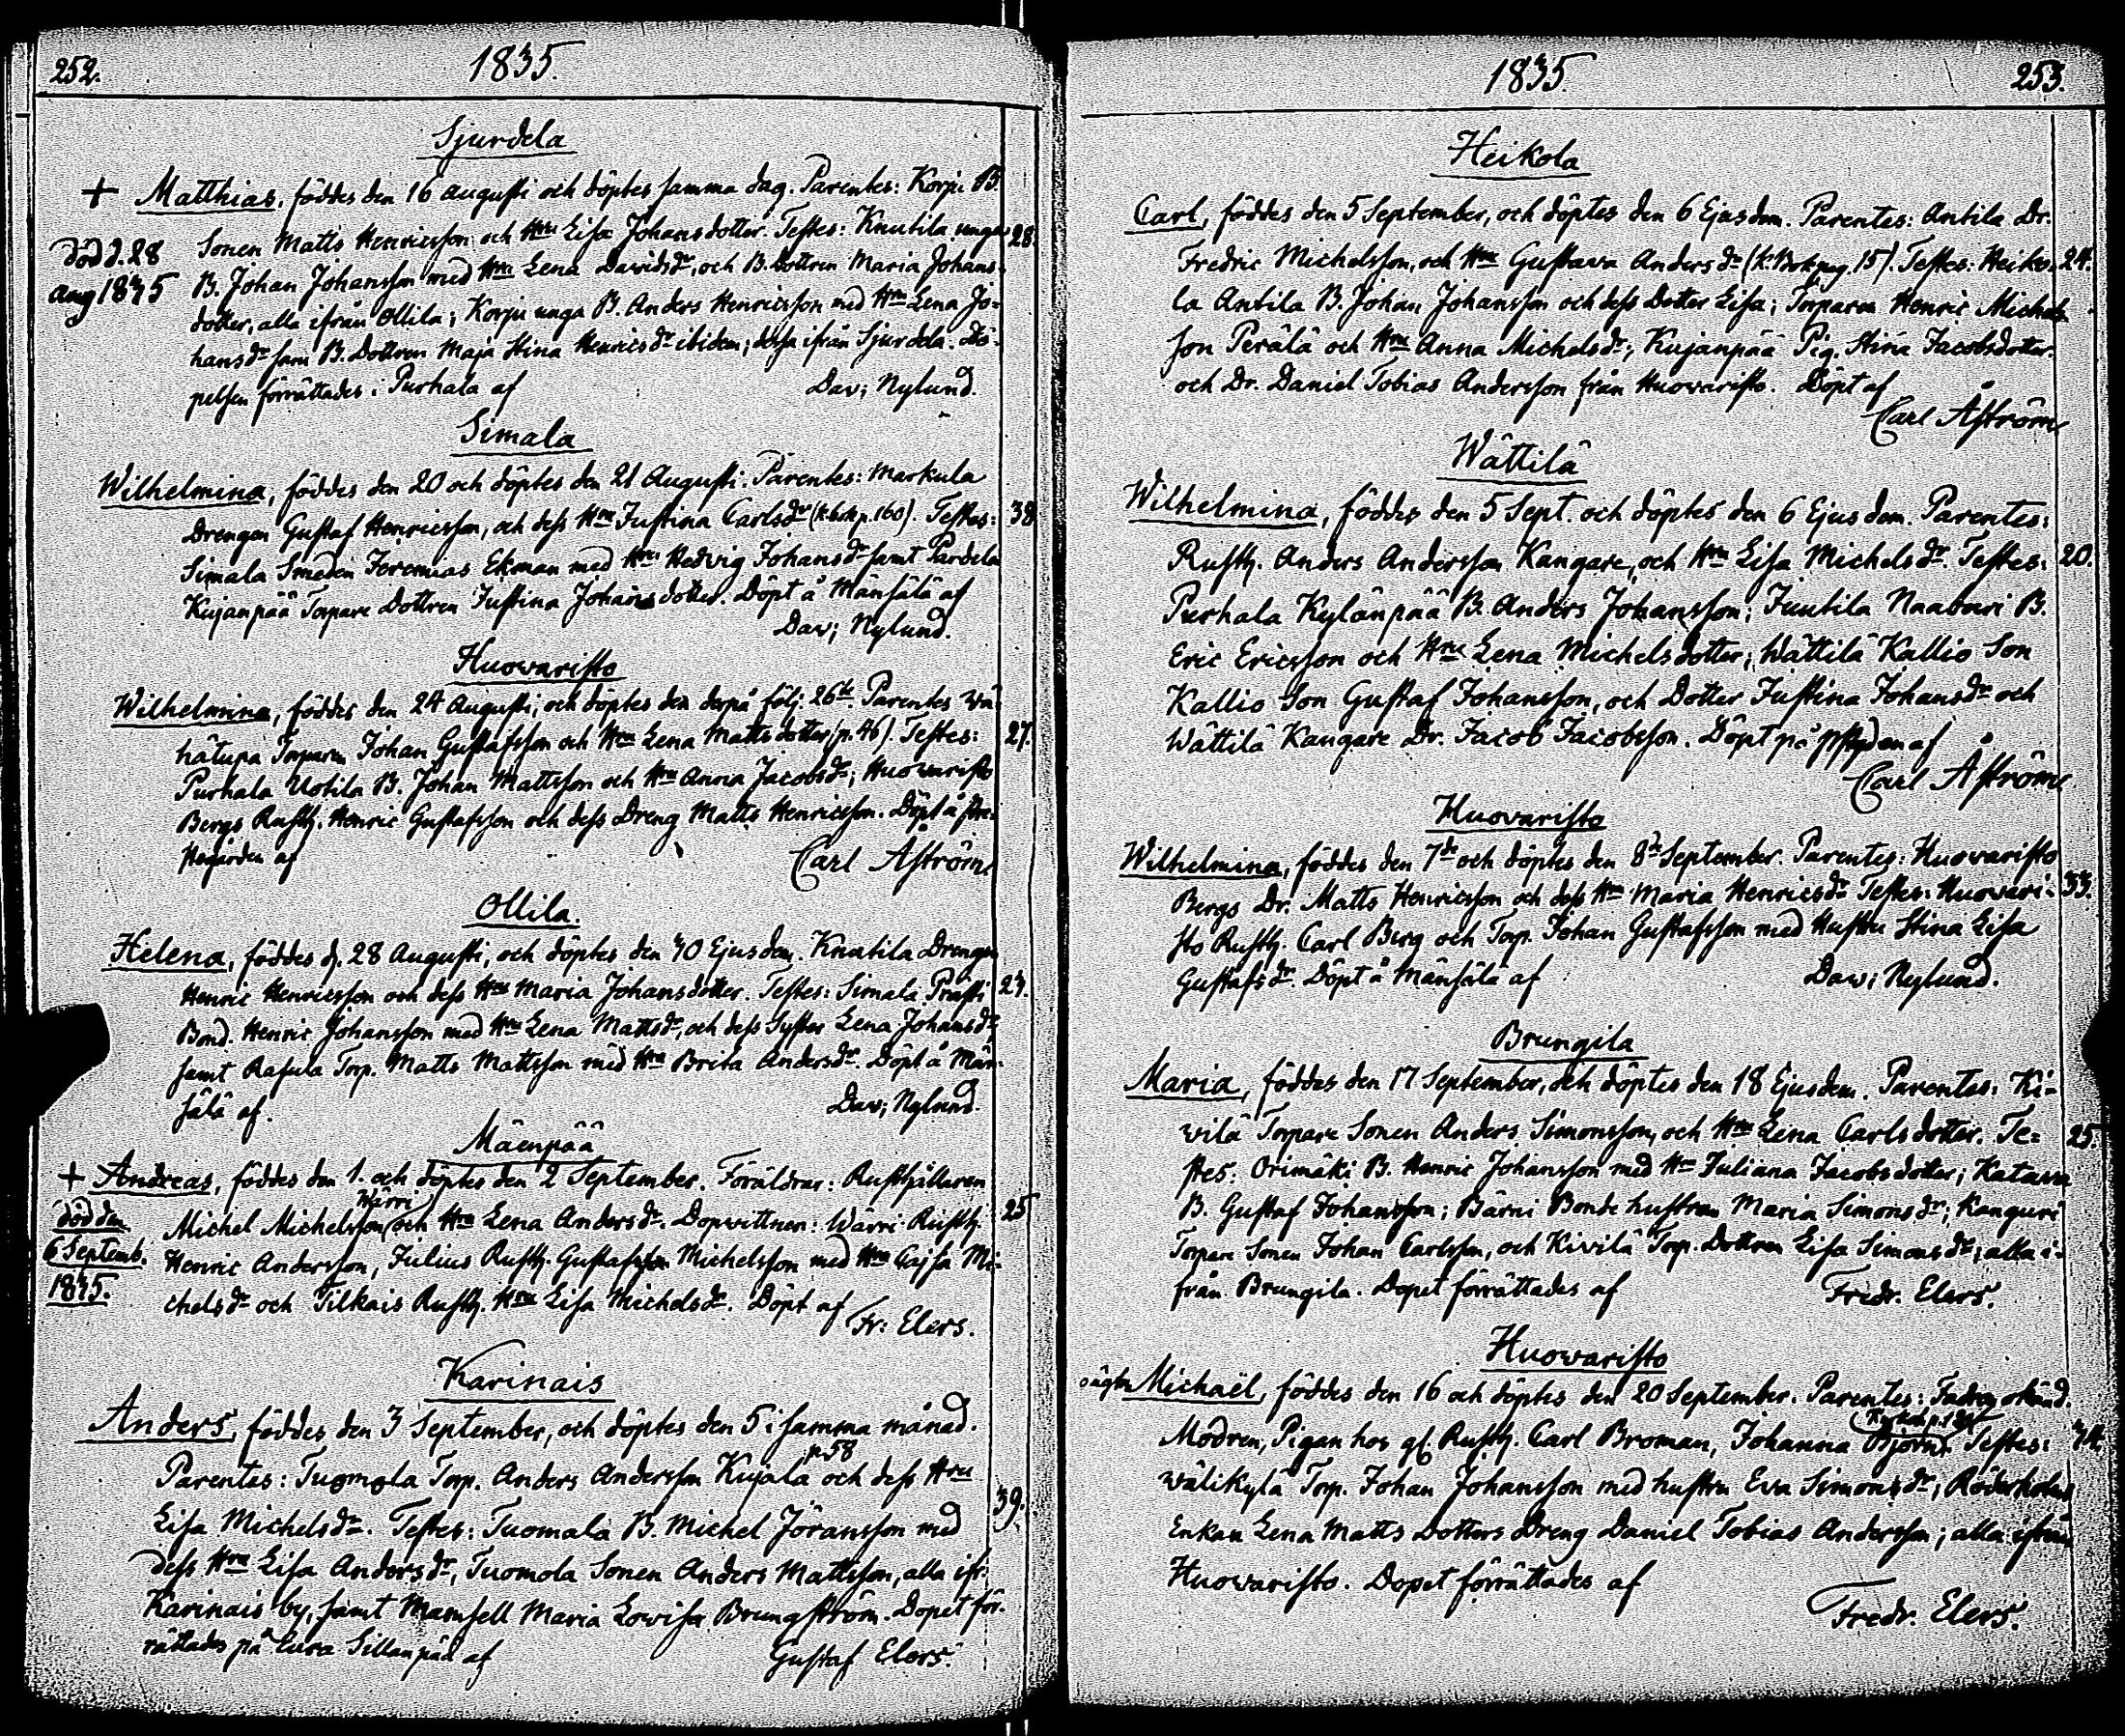 252.
1835.
Sjurdela
+ Matthias, föddes den 16 augusti och döptes samma dag. Parentes: Korpi B.
Sonen Matts Henricsson och Hru Lisa Johansdotter. Testes: Knutila unga 28.
död d. 28
B. Johan Johansson med Hru Lena Davidsdr, och B. Dottren Maria Johans-
Aug 1835
dotter, alla ifrån Ollila; Korpi unga B. Anders Henricsson med Hru Lena Jo-
hansdr samt B. Dottren Maja Stina Henricsdr ibidem; dessa ifrån Sjurdela. Dö-
pelsen förrättades i Purhala af Dav; Nylund.
Simala
Wilhelmina, föddes den 20 och döptes den 21 Augusti. Parentes: Markula
Drengen Gustaf Henricsson, och dess Hru Justina Carlsdr (k.bok p. 160). Testes: 38
Simala Smeden Jeremias Ekman med Hru Hedvig Johansdr samt Pardela
Kujanpää Torpare Dottren Justina Johansdotter. Döpt å Mänsälä af
Dav; Nylund.
Huovaristo
Wilhelmina, föddes den 24 Augusti, och döptes den derpå följ. 26te. Parentes Wä-
hätupa Torparen Johan Gustafsson och Hru Lena Mattsdotter (p. 46). Testes: 27.
Purhala Uotila B. Johan Mattsson och Hru Anna Jacobsdr; Huovaristo
Bergs Rusth. Henric Gustafsson och dess Dreng Matts Henricsson. Döpt å Pre-
stegården af Carl Åström
Ollila.
Helena, föddes d. 28 Augusti, och döptes den 30 Ejusdem. Knutila Drengen
Henric Henricsson och dess Hru Maria Johansdotter. Testes: Simala Prästi 23.
Bond. Henric Johansson med Hru Lena Mattsdr, och dess Syster Lena Johansdr
samt Rasula Torp. Matts Mattsson med Hru Brita Andersdr. Döpt å Män-
sälä af. Dav; Nylund.
Mäenpää
+ Andreas, föddes den 1. och döptes den 2 September. Föräldrar: Rusthållaren
Wärri
Michel Michelsson och Hru Lena Andersdr. Dopvittnen: Wärri Rusth. 25
död den
6 Septemb.
1835.
Henric Andersson, Julius Rusth. Gustafsson Michelsson med Hru Cajsa Mi-
chelsdr och Tilkais Rusth. Hru Lisa Michelsdr. Döpt af
Fr: Elers.
Karinais
Anders, föddes den 3 September, och döptes den 5 i samma månad.
p. 58
Parentes: Tuomola Torp. Anders Andersson Kujala och dess Hru
Lisa Michelsdr. Testes: Tuomala B. Michel Jöransson med 39.
dess Hru Lisa Andersdr, Tuomola Sonen Anders Mattsson, alla ifr:
Karinais by, samt Mamsell Maria Lovisa Brungström. Dopet för-
rättades på Eura Sillanpää af Gustaf Elers.
1835.
253.
Heikola
Carl, föddes den 5 September, och döptes den 6 Ejusdem. Parentes: Antila Dr.
Fredric Michelsson, och Hru Gustava Andersdr (k.bok pag. 15). Testes: Heiko- 24.
la Antila B. Johan Johansson och dess Dotter Lisa; Torparen Henric Michels-
son Perälä och Hru Anna Michelsdr; Kujanpää Pig. Stina Jacobsdotter
och Dr. Daniel Tobias Andersson från Huovaristo. Döpt af
Carl Åström
Wättilä
Wilhelmina, föddes den 5 Sept. och döptes den 6 Ejusdem. Parentes:
Rusth. Anders Andersson Kangare, och Hru Lisa Michelsdr. Testes: 20.
Purhala Kylänpää B. Anders Johansson; Juutila Naaburi B.
Eric Ericsson och Hru Lena Michelsdotter; Wättilä Kallio Son
Kallio Son Gustaf Johansson, och Dotter Justina Johansdr och
Wättilä Kangare Dr. Jacob Jacobsson. Döpt på af
Carl Åström
Huovaristo
Wilhelmina, föddes den 7de och döptes den 8de September. Parentes: Huovaristo
Bergs Dr. Matts Henricsson och dess Hru Maria Henricsdr. Testes: Huovari- 33.
sto Rusth. Carl Berg och Torp. Johan Gustafsson med Hustru Stina Lisa
Gustafsdr. Döpt å Mänsälä af Dav; Nylund.
Brungila
Maria, föddes den 17 September, och döptes den 18 Ejusdem. Parentes: Ki-
vilä Torpare Sonen Anders Simonsson, och Hru Lena Carlsdotter. Te- 25.
stes: Orimäki B. Henric Johansson med Hru Juliana Jacobsdotter; Katava
B. Gustaf Johansson; Bärni Bonde hustrun Maria Simonsdr; Kanguri
Torpare Sonen Johan Carlsson, och Kivilä Torp. Dottren Lisa Simonsdr; alla i-
från Brungila. Dopet förrättades af Fredr. Elers.
Huovaristo
oägta Michaël, föddes den 16 och döptes den 20 September. Parentes: Fadren okänd.
Modren, Pigan hos gl. Rusth. Carl Broman, Johanna Björn. Testes:
Wälikylä Torp. Johan Johansson med hustru Eva Simonsdr; Röderholms
Enkan Lena Matts Dotters Dreng Daniel Tobias Andersson; alla ifrån
Huovaristo. Dopet förrättades af
Fredr. Elers.